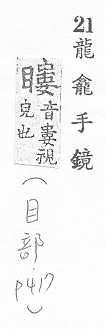 21龍龕手鏡
瞜音婁視
皃也
(目部.P417)